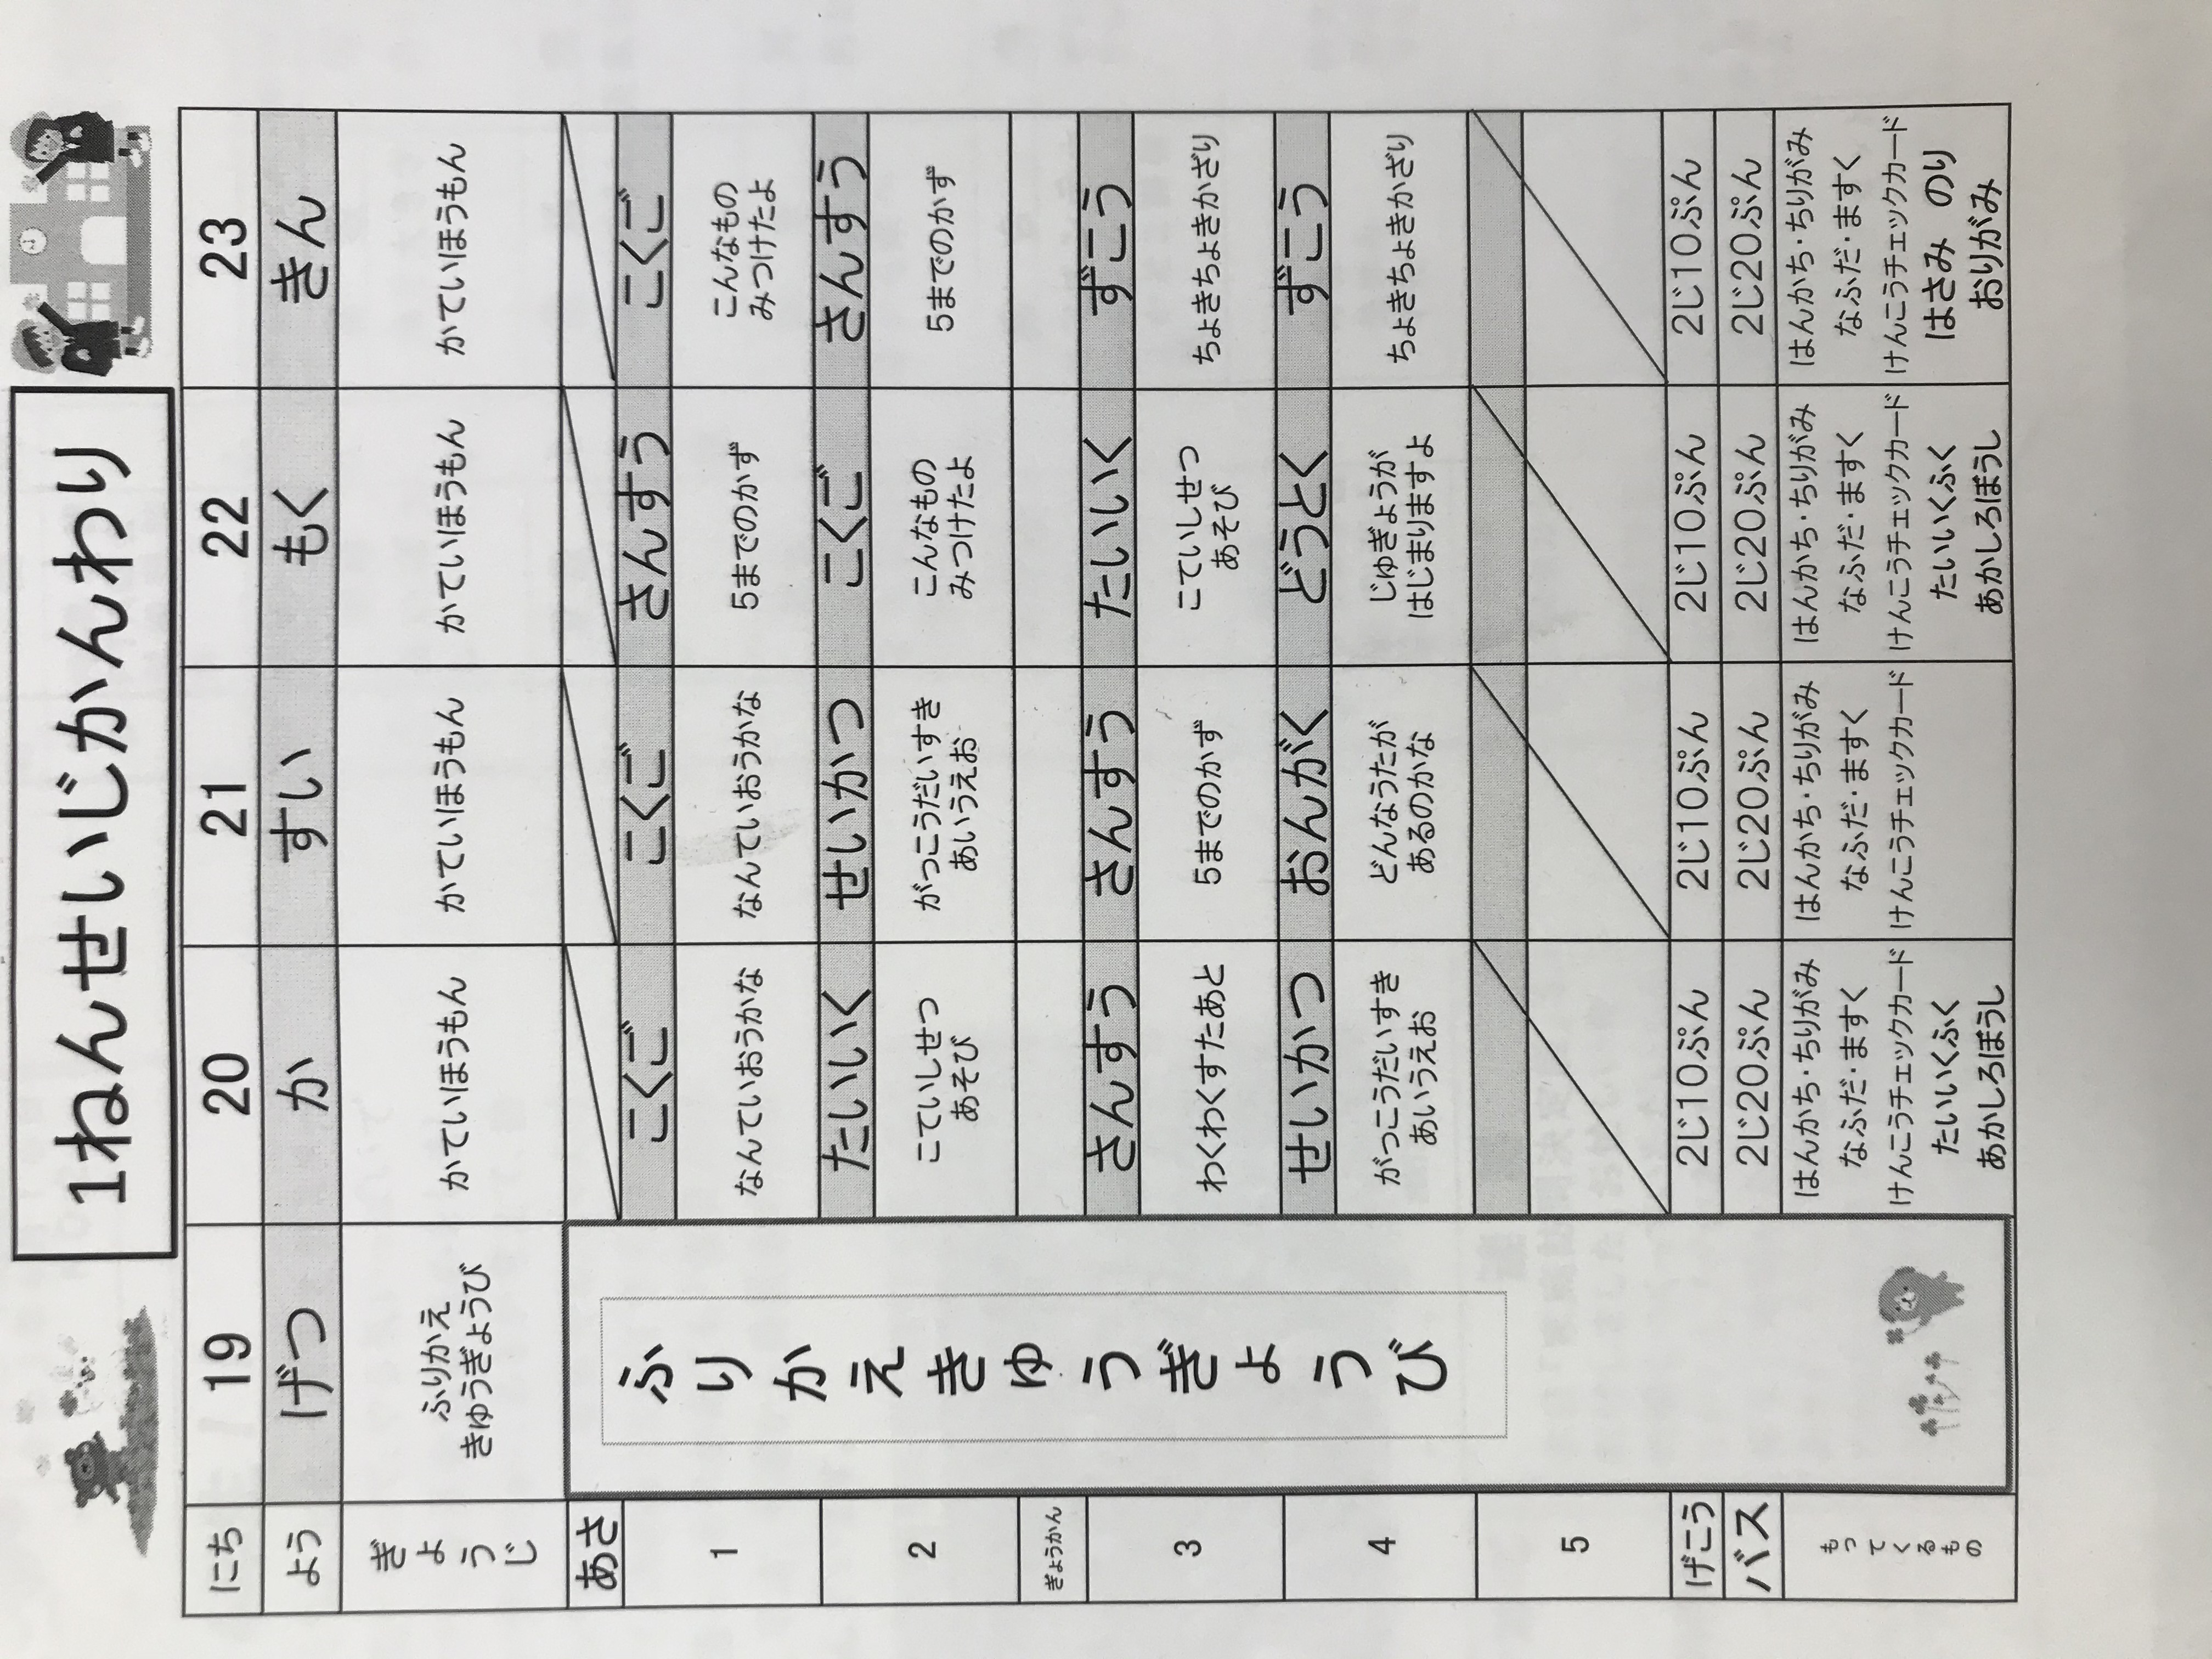 1ねんせいじかんわり
にち 19 20 21 22 23
よう げつ か すい もく きん
ぎょうじ
ふりかえ
きゅうぎょうび
かていほうもん かていほうもん かていほうもん かていほうもん
あさ
ふりかえきゅうぎょうび
1
こくご こくご さんすう こくご
なんていおうかな なんていおうかな 5までのかず こんなもの
みつけたよ
2
たいいく せいかつ こくご さんすう
こていしせつ
あそび
がっこうだいすき
あいうえお
こんなもの
みつけたよ
5までのかず
ぎょうかん
3
さんすう さんすう たいいく ずこう
わくわくすたあと
5までのかず
こていしせつ
あそび
ちょきちょきかざり
4
せいかつ おんがく どうとく ずこう
がっこうだいすき
あいうえお
どんなうたが
あるのかな
じゅぎょうが
はじまりますよ
ちょきちょきかざり
5
げこう 2じ10ぷん 2じ10ぷん 2じ10ぷん 2じ10ぷん
バス 2じ20ぷん 2じ20ぷん 2じ20ぷん 2じ20ぷん
もってくるもの
はんかち・ちりがみ
なふだ・ますく
けんこうチェックカード
たいいくふく
あかしろぼうし
はんかち・ちりがみ
なふだ・ますく
けんこうチェックカード
はんかち・ちりがみ
なふだ・ますく
けんこうチェックカード
たいいくふく
あかしろぼうし
はんかち・ちりがみ
なふだ・ますく
けんこうチェックカード
はさみ のり
おりがみ